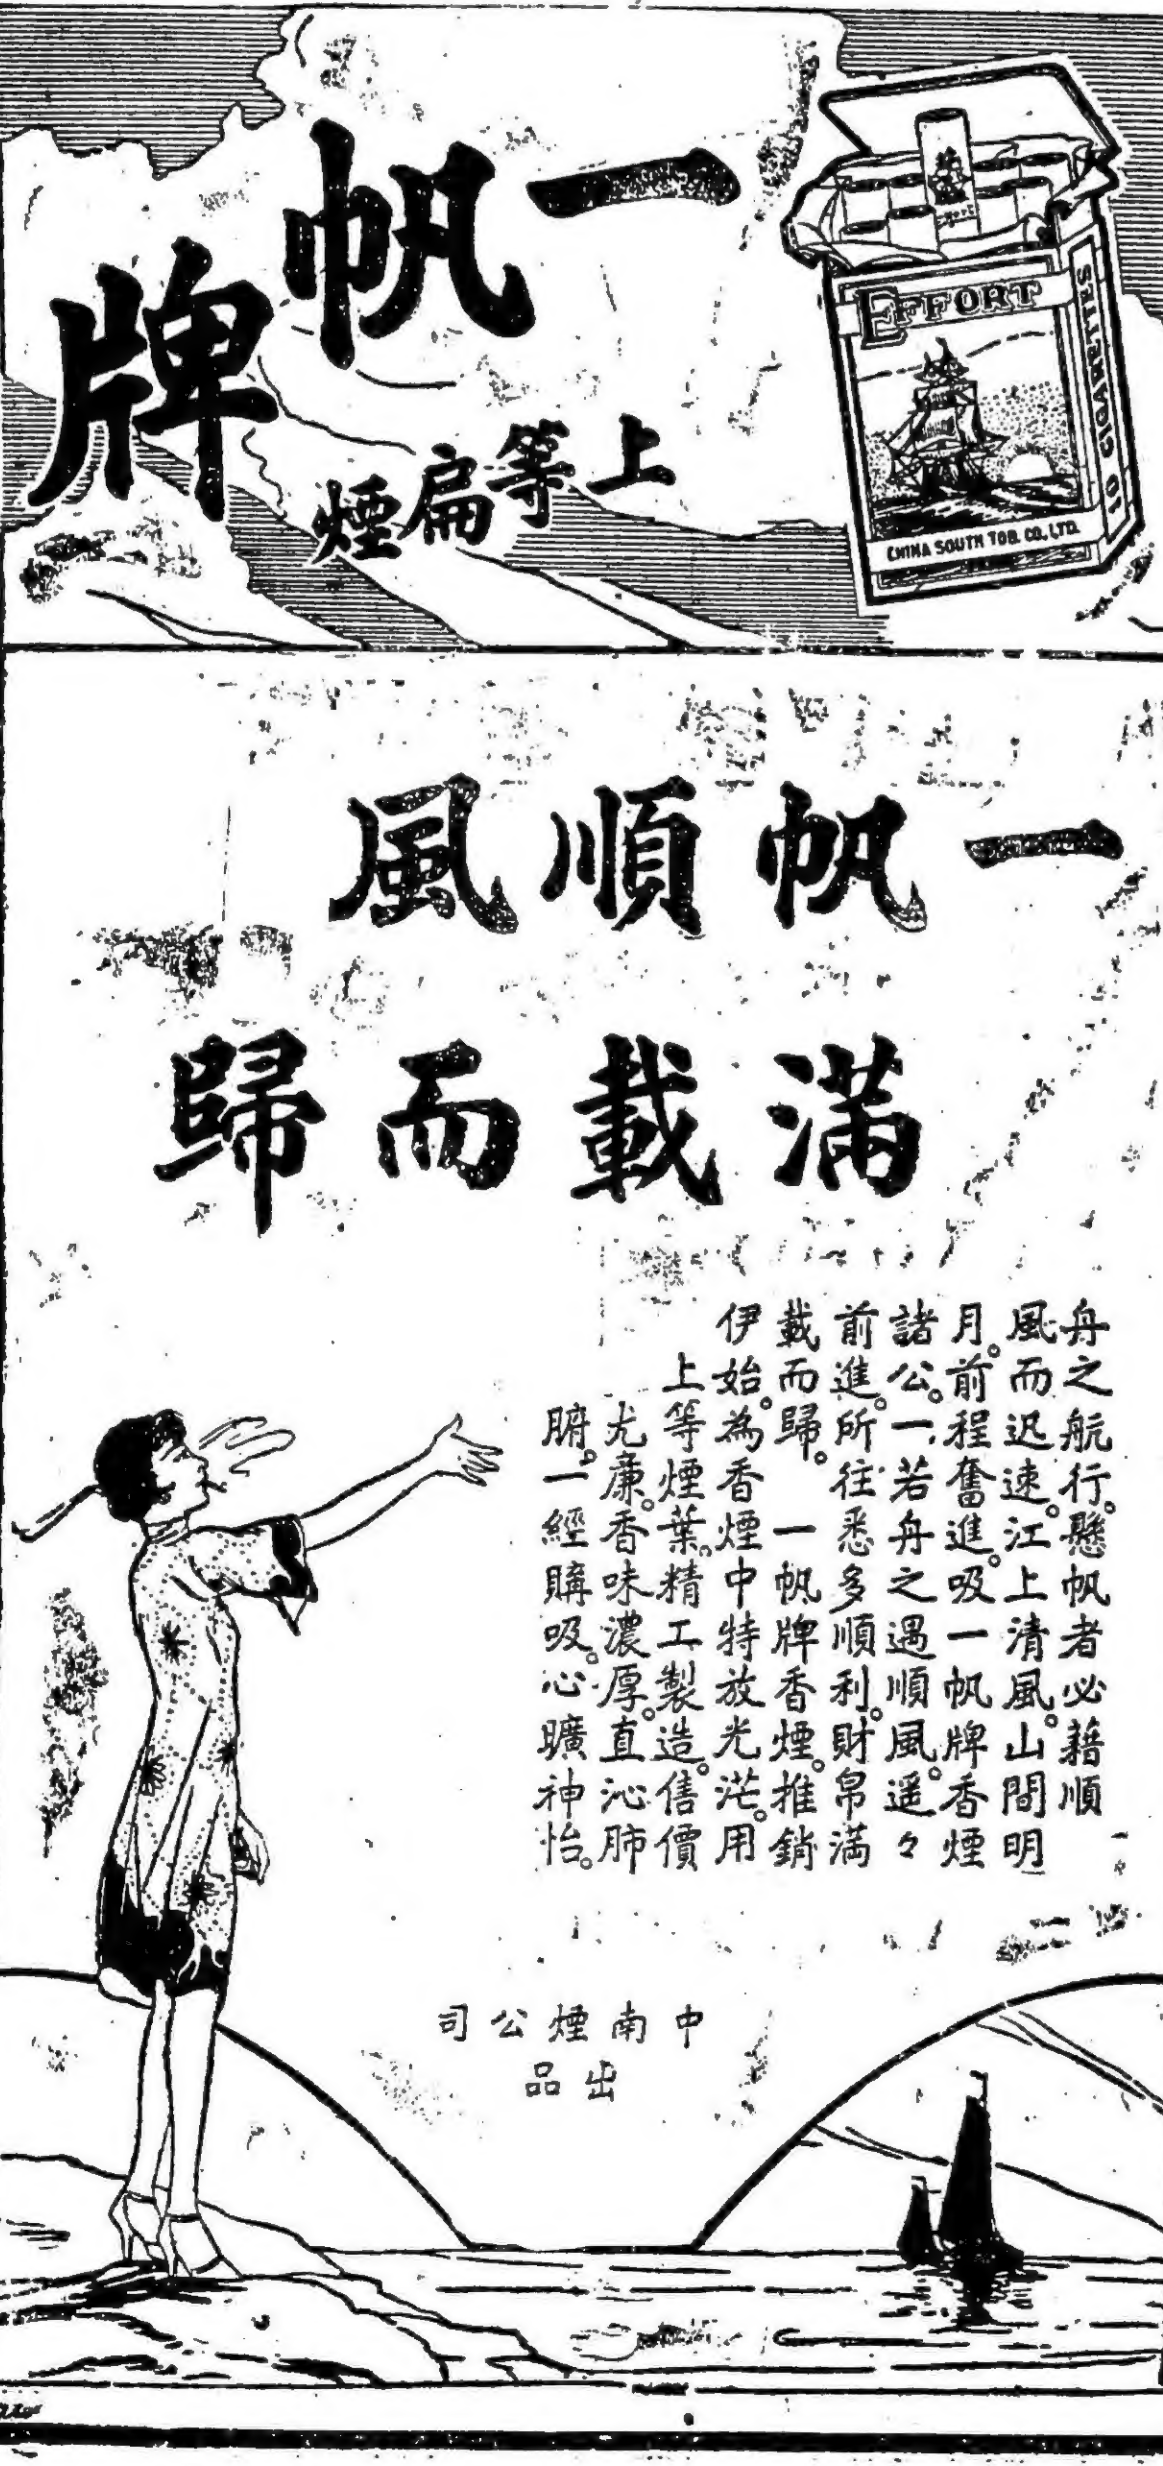 一帆牌
上等扁煙
EFFORT
10 CIGARETTES
CHINA SOUTH TOB. CO., LTD.
一帆順風
滿載而歸
舟之航行。懸帆者必藉順
風而迟速。江上清風。山間明
月。前程奮進。吸一帆牌香煙
諸公。一若舟之遇順風。遥々
前進。所往悉多順利。財帛滿
載而歸。一帆牌香煙。推銷
伊始。為香煙中特放光茫。用
上等煙葉。精工製造。售價
尤廉。香味濃厚。直沁肺
腑。一經購吸。心曠神怡。
中南煙公司
出品